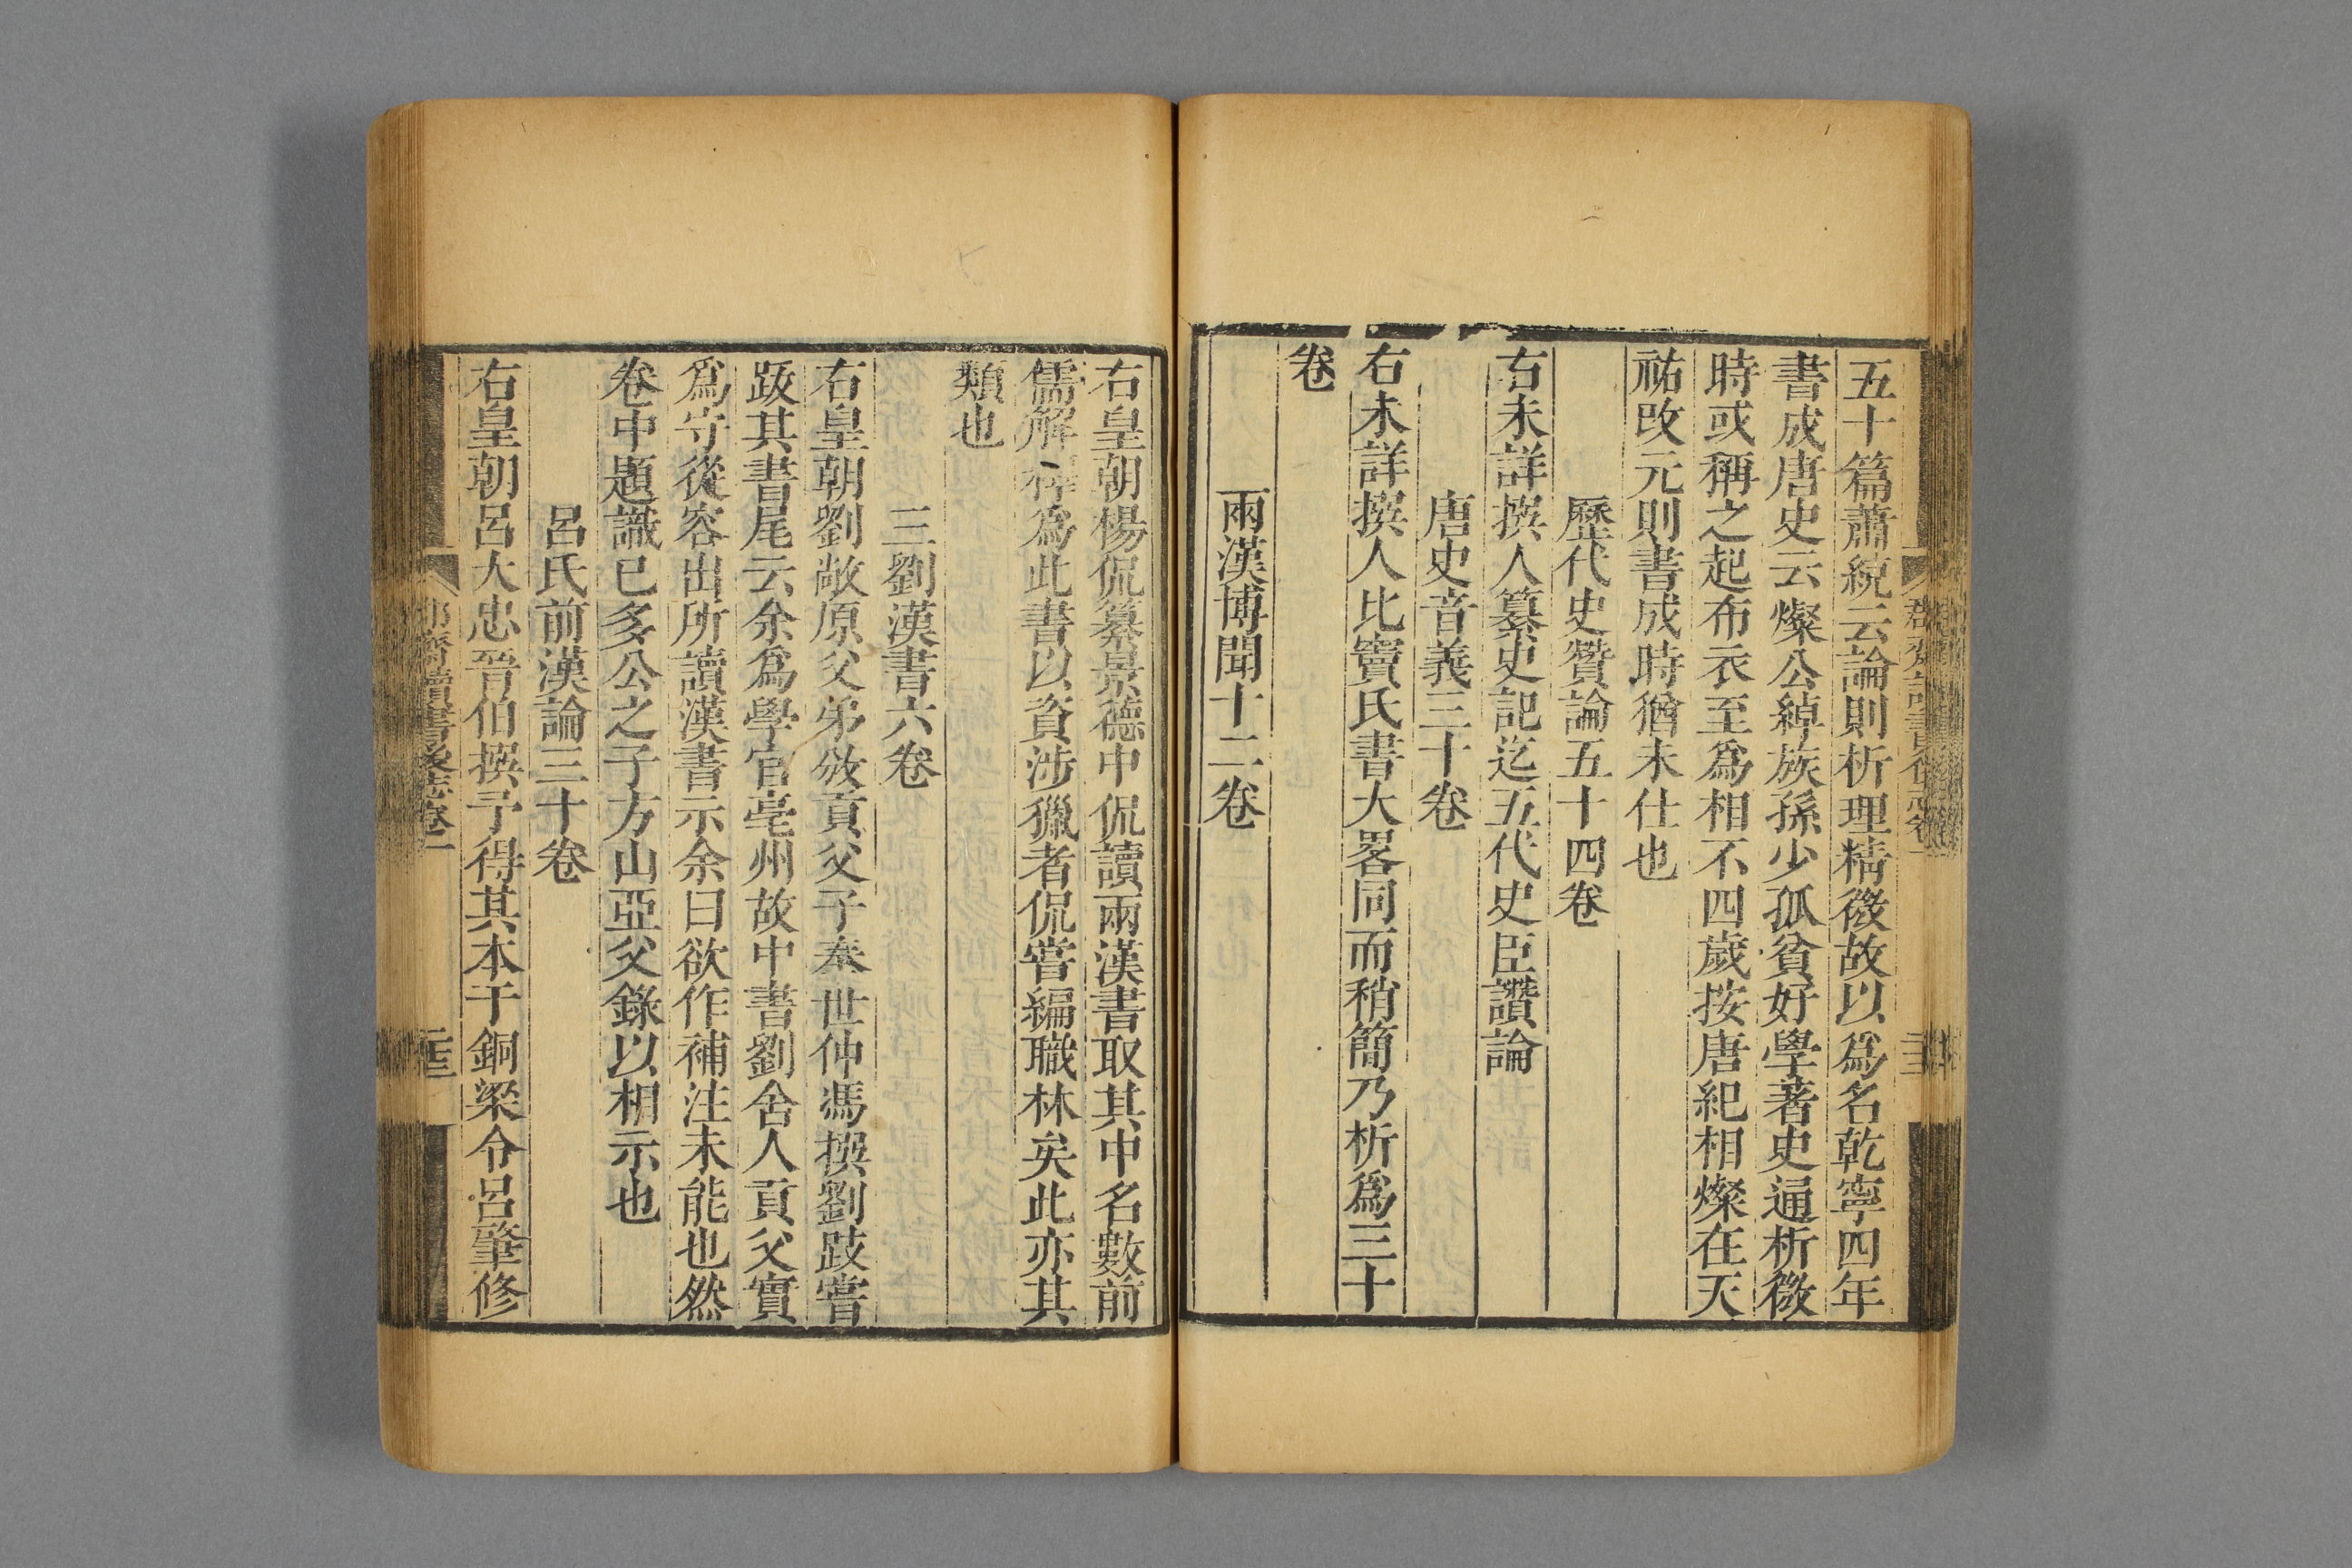 五十篇蕭統云論則析理精微故以爲名乾寧四年
書成唐史云燦公綽族孫少孤貧好學著史通析微
時或稱之起布衣至爲相不四歲按唐紀相燦在天
祐改元則書成時猶未仕也
歷代史贊論五十四卷
右未詳撰人纂史記迄五代史臣讚論
唐史音義三十卷
右未詳撰人比竇氏書大畧同而稍簡乃析爲三十
卷
兩漢博聞十二卷
右皇朝楊侃纂景德中侃讀兩漢書取其中名數前
儒解釋爲此書以資涉獵者侃嘗編職林矣此亦其
類也
三劉漢書六卷
右皇朝劉敞原父弟攽貢父子奉世仲馮撰劉跂嘗
跋其書尾云余爲學官亳州故中書劉舍人貢父實
爲守從容出所讀漢書示余曰欲作補注未能也然
卷中題識已多公之子方山亞父錄以相示也
呂氏前漢論三十卷
右皇朝呂大忠晉伯撰予得其本于銅梁令呂肇修
郡齋讀書後志卷一